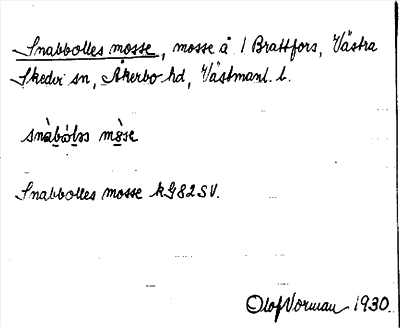 Snabbolles mosse, mosse å 1 Brattfors, Västra
Skedvi sn, Åkerbo hd, Västmanl. l.
Snabbolles mosse kG82SV.
Olof Vorman 1930